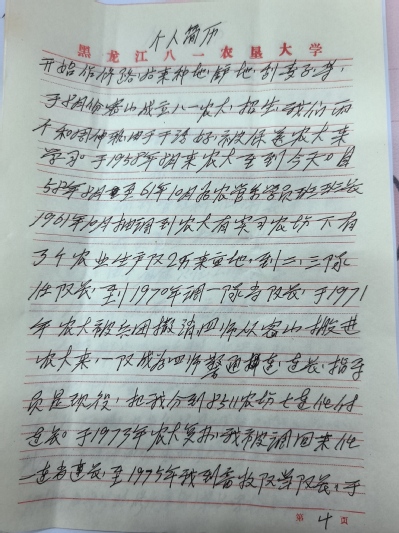 个人简历
黑龙江八一农垦大学
开始作修路后来种地、锄地、割麦子等,
于8月份密山成立八一农大,招生,我们两
个和同种 由于干活好,被保送农大来
学习。于1958年8月来农大至到今天。自
58年8月至61年10月在农大 学员班班长
1961年10月 调到农大有实习农场下有
3个农业生产队2万来亩地,到二、三队
任队长,至1970年调一队当队长,于1971
年农大被兵团撤消四师从密山搬进
农大来,一队成为四师警通 连,连长,指导
员是现役,把我分到8511农场七连任付
连长。于1973年农大 办,我被调回来任
一连 连长,至1975年我到畜牧队当队长,于
第 4 页